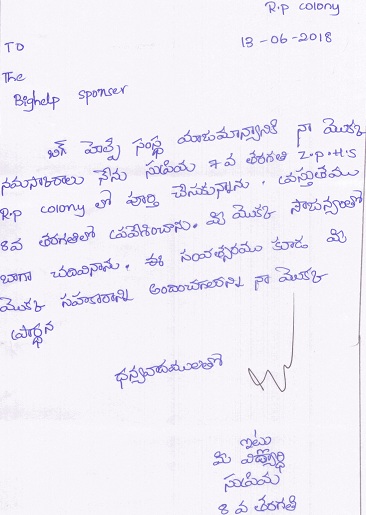 R.p colony
13-06-2018
TO
The
Bighelp sponser
బిగ్ హెల్ప్ సంస్థ యాజమాన్యానికి నా మొక్క
నమసాకారాలు నేను సుప్రియ 7వ తరగతి Z.P.H.S
R.p colony లో పూర్తి చేసుకున్నాను. ప్రస్తుతము
8వ తరగతిలో ప్రవేశించాను. మీ మొక్క సాయంతో
బాగా చదివినాను. ఈ సంవత్సరము కూడ మీ
మొక్క సహకారాన్ని అందించగలరని నా మొక్క
ప్రార్థన
ధన్యవాదములతో
ఇట్లు
మీ విద్యార్థి
సుప్రియ
8 వ తరగతి